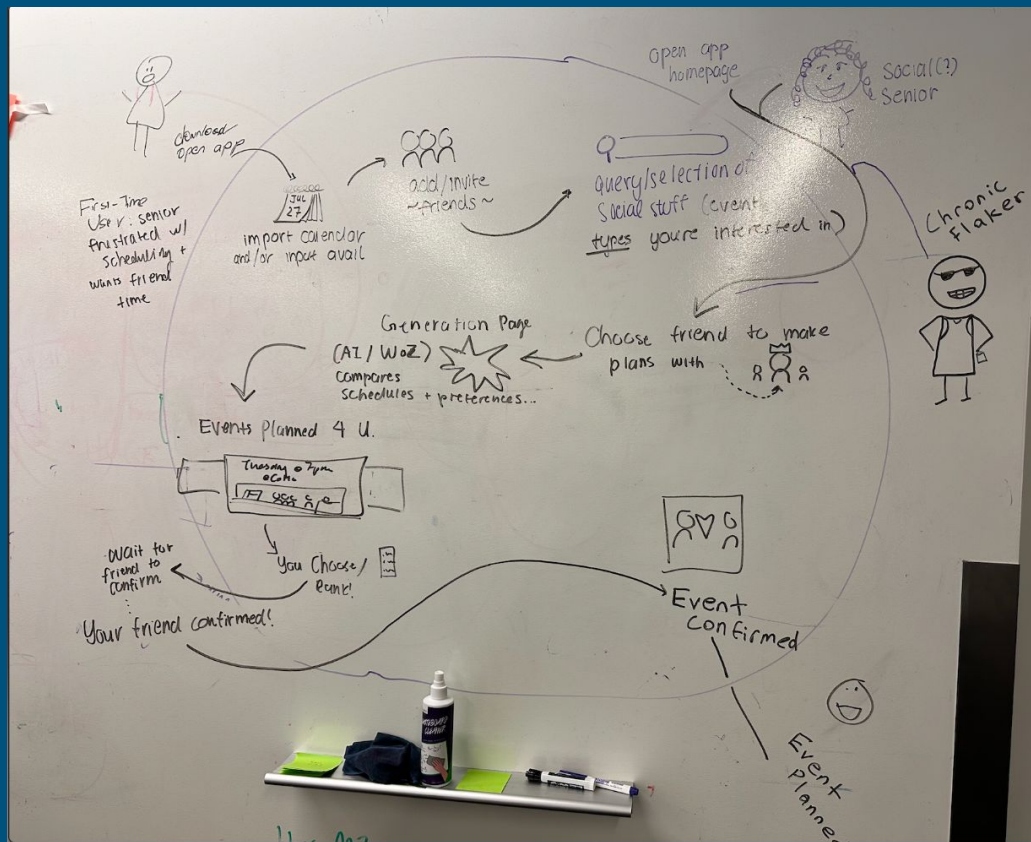 open app
homepage
Social(?)
Senior
download
open app
First-Time
User: senior
frustrated w/
scheduling +
wants friend
time
JUL
27
import calendar
and/or input avail
add/invite
~friends~
query/selection of
Social stuff (event
types you're interested in)
Chronic
flaker
Choose friend to make
plans with
Generation Page
(AI / WoZ)
compares
schedules + preferences...
Events Planned 4 U.
Tuesday @ 7pm
You Choose/
Rank!
Wait for
friend to
confirm
...
Your friend confirmed!
Event
confirmed
Event